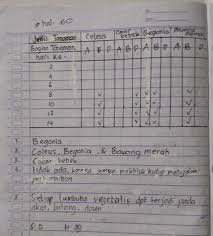 * hal : 60
Jenis Tanaman Coleus Cocor bebek Begonia Bawang merah
Bagian Tanaman A B D A B D A B D A B D
hari ke -
2
4
6
8 v v v v v
10 v v v v v
12 v v v v v
14 v v v v v
1. Begonia
2. Coleus, Begonia, & Bawang merah
3. Cocor bebek
4. tidak ada, karena semua makhluk hidup mengalami
pertumbuhan
5. Setiap tumbuhan vegetatif dpt terjadi pada
akar, batang, daun